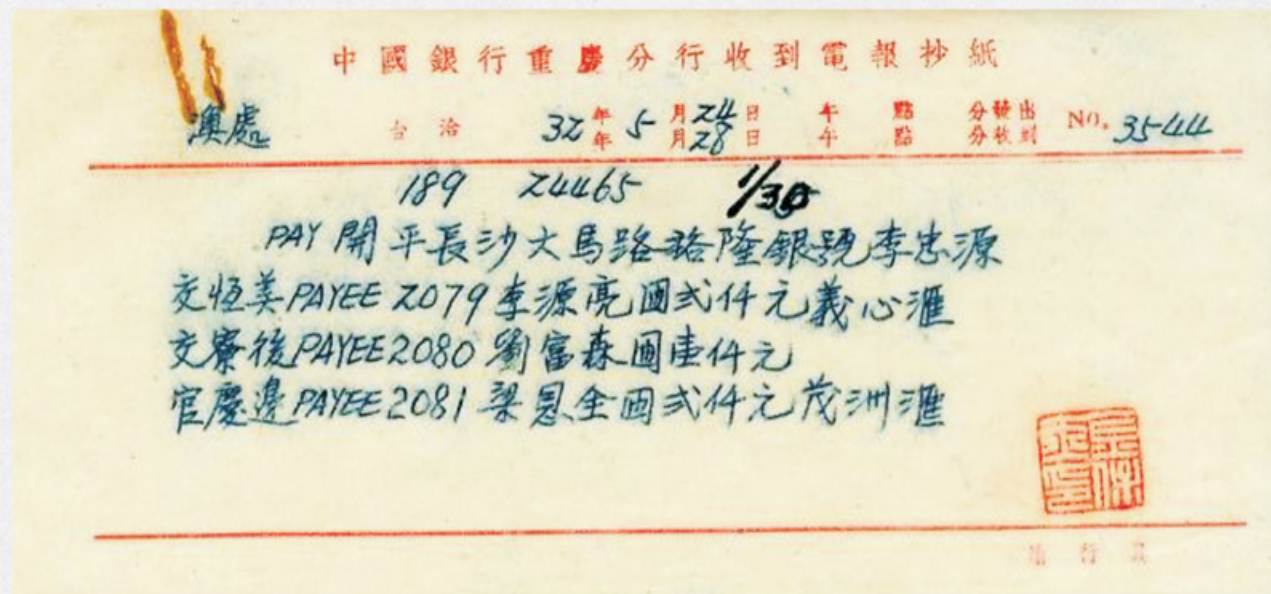 中國銀行重慶分行收到電報抄紙
澳處 台洽 32年5月24日 午 點 分發出 NO. 3544
年 月28日 午 點 分收到
189 24465 1/30
PAY 開平長沙大馬路 隆銀號李忠源
交恆美PAYEE 2079 李源亮國弍仟元義心滙
交寮後PAYEE 2080 劉富森國壹仟元
官慶邊PAYEE 2081 梁恩全國弍仟元茂洲滙